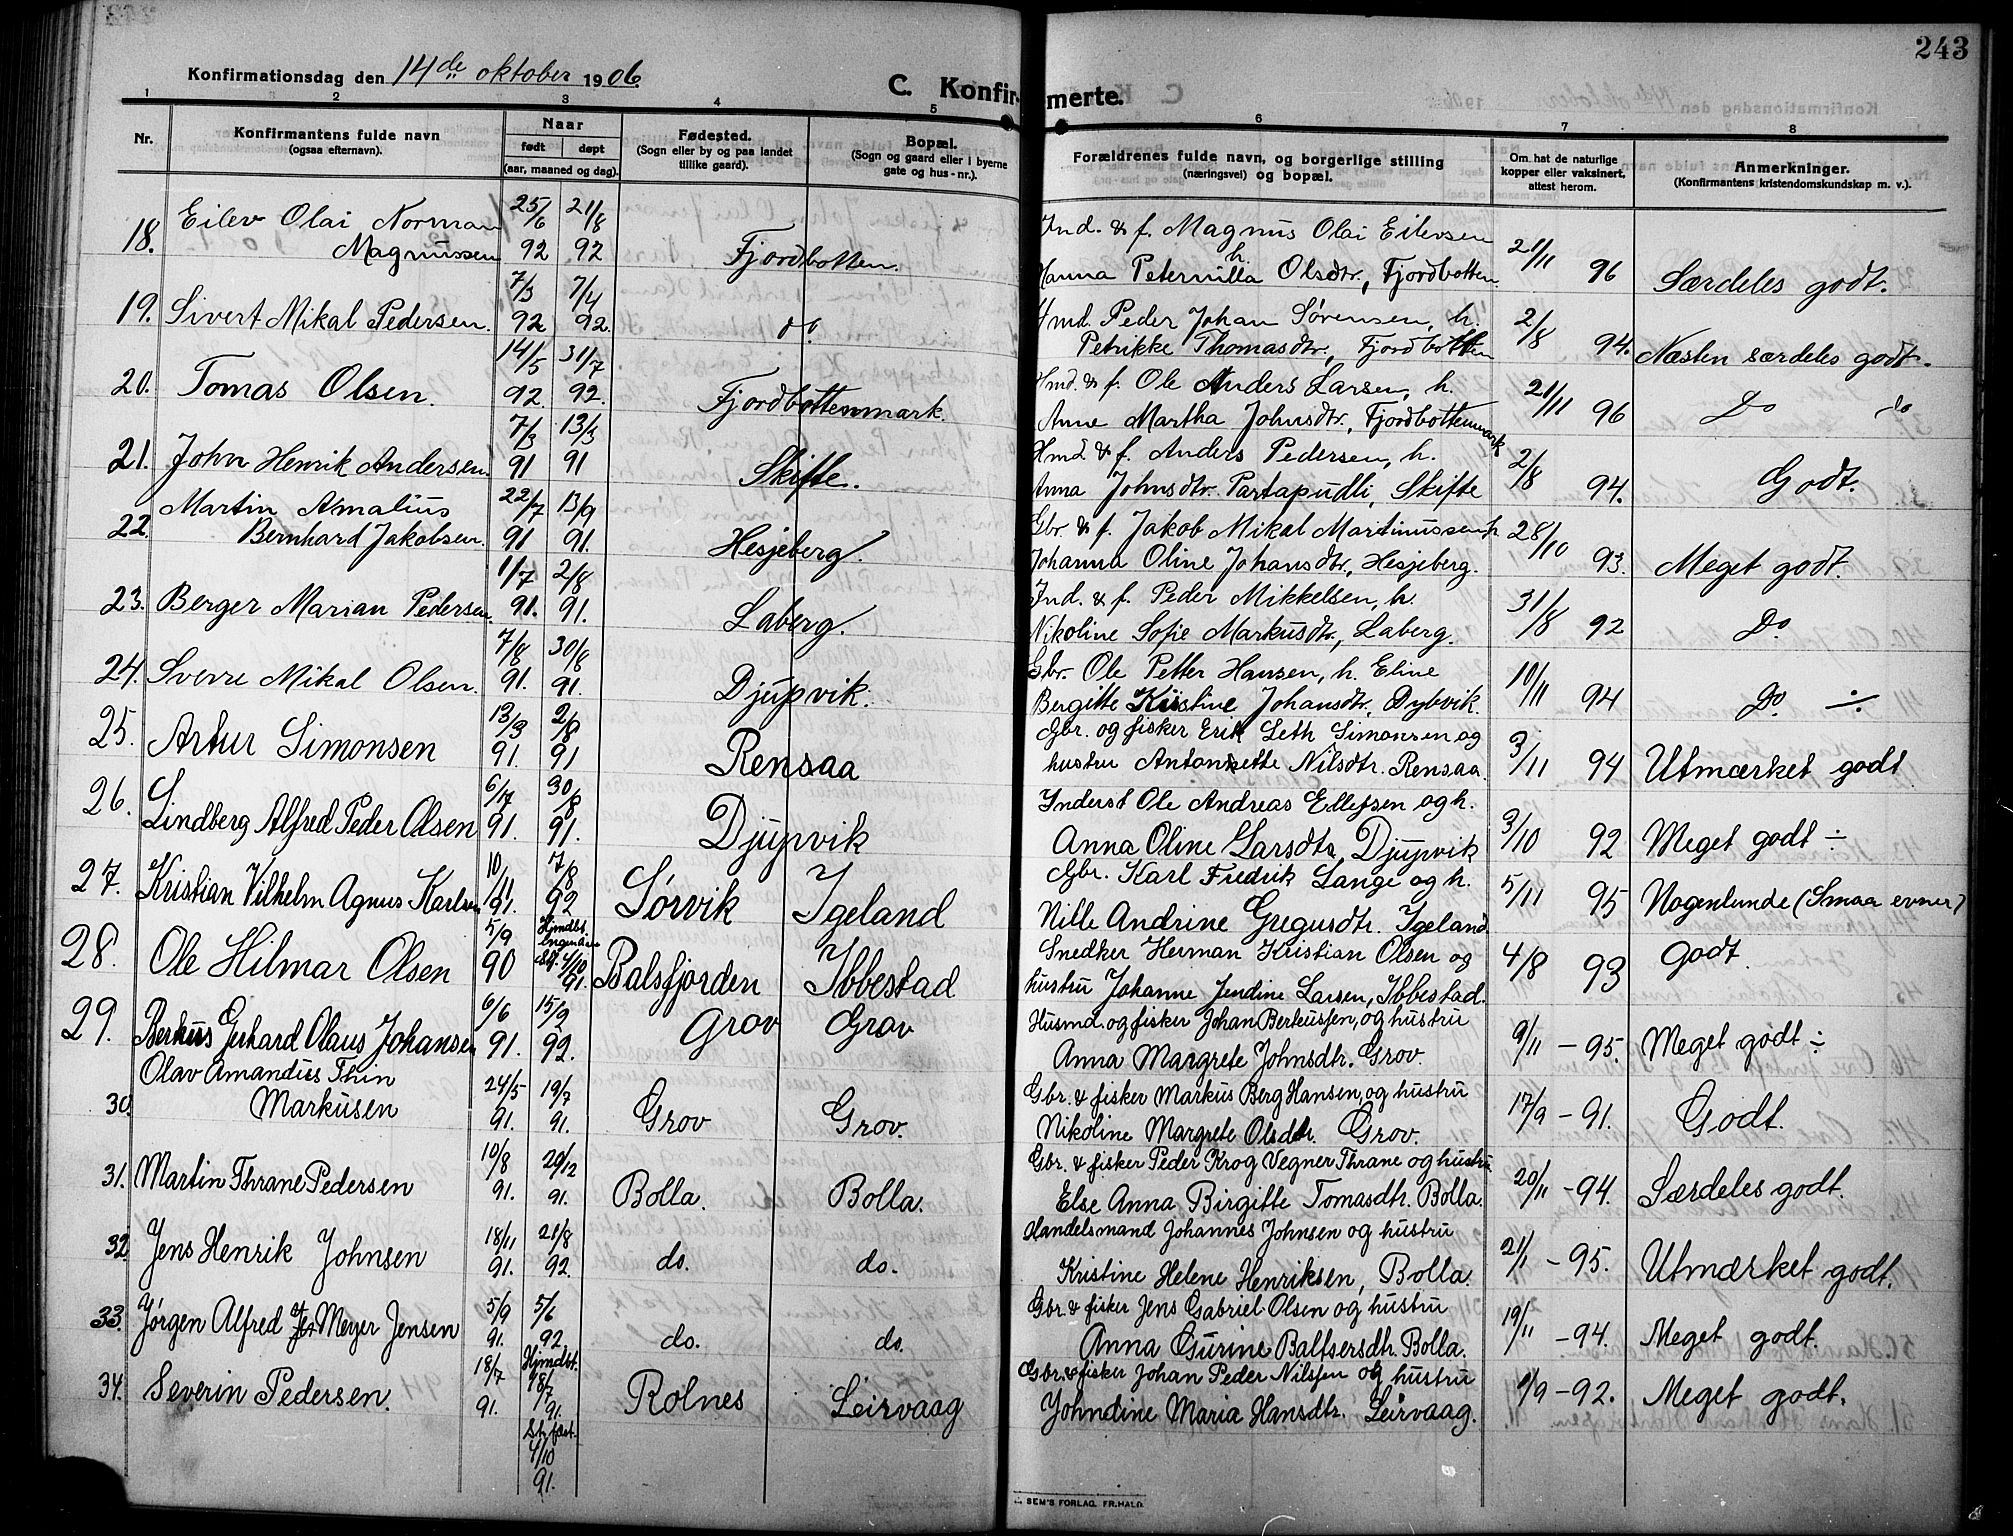 243
Konfirmationsdag den 14de oktober 1906.
C. Konfirmerte.
1 2 3 4 5 6 7 8
Nr.
Konfirmantens fulde navn
(ogsaa efternavn).
Naar
født døpt
(aar, maaned og dag).
Fødested.
(Sogn eller by og paa landet
tillike gaard).
Bopæl.
(Sogn og gaard eller i byerne
gate og hus-nr.).
Forældrenes fulde navn, og borgerlige stilling
(næringsvei) og bopæl.
Om hat de naturlige
kopper eller vaksinert,
attest herom.
Anmerkninger.
(Konfirmantens kristendomskundskap m. v.).
Eilev Olai Norman 25/6 21/8 Ind. & f. Magnus Olai Eilersen 21/11
18. Magnussen 92 92 Fjordbotten. h. Hanna Peternilla Olsdtr., Fjordbotten. 96 Særdeles godt.
7/3 7/4 Hmd. Peder Johan Sørensen, h. 2/8
19. Sivert Mikal Pedersen. 92 92. do. Petrikke Thomasdtr., Fjordbotten 94. Næsten særdeles godt.
14/5 31/7 Hmd. & f. Ole Anders Larsen, h. 21/11
20. Tomas Olsen. 92. 92. Fjordbottenmark. Anne Martha Johnsdtr., Fjordbottenmark 96 Do do
7/3 13/3 Hmd & f. Anders Pedersen, h. 2/8
21. John Henrik Andersen. 91 91 Skifte. Anna Johnsdtr. Partapudli, Skifte 94. Godt.
Martin Amalius 22/7 13/9 Gbr. & f. Jakob Mikal Martinussen h. 28/10
22. Bernhard Jakobsen. 91 91. Hesjeberg. Johanna Oline Johansdtr., Hesjeberg. 93. Meget godt.
1/7 2/8 Ind. & f. Peder Mikkelsen, h. 31/8
23. Berger Marian Pedersen. 91. 91. Laberg. Nikoline Sofie Markusdtr., Laberg. 92 Do.
7/8 30/8 Gbr. Ole Petter Hansen, h. Eline 10/11
24. Sverre Mikal Olsen. 91. 91. Djupvik. Bergitte Kristine Johansdtr., Dybvik. 94 Do. ÷
13/3 2/8 Gbr. og fisker Erik Seth Simonsen og
25. Artur Simonsen 91. 91 Rensaa hustru Antonette Nilsdtr. Rensaa. 3/11 94 Utmærket godt
6/7 30/8 Inderst Ole Andreas Ellefsen og h.
26. Lindberg Alfred Peder Olsen 91. 91. Djupvik Anna Oline Larsdtr, Djupvik 3/10 92 Meget godt ÷
10/11 7/8 Gbr. Karl Fredrik Lange og h.
27. Kristian Vilhelm Agnus Karlsen 91. 92 Sørvik Igeland Nille Andrine Gregusdtr. Igeland. 5/11 95 Nogenlunde (Smaa evner)
5/9 Hjmdbt. Snedker Herman Kristian Olsen og
28. Ole Hilmar Olsen 90 4/10 91. Balsfjorden Ibbestad hustru Johanne Jendine Larsen, Ibbestad. 4/8 93 Godt.
6/6 15/9 Husmd. og fisker Johan Berteussen, og hustru
29. Gerhard Olaus Johansen 91. 92. Grov Grov Anna Margrete Johnsdtr. Grov. 9/11 - 95. Meget godt ÷
Olav Amandus Thin 24/5 19/7 Gbr. & fisker Markus Berg Hansen, og hustru
30. Markusen 91. 91. Grov Grov. Nikoline Margrete Olsdtr. Grov. 17/9 - 91. Godt.
10/8 20/12 Gbr. & fisker Peder Krog Vegner Thrane og hustru
31. Martin Thrane Pedersen 91. 91. Bolla. Bolla. Else Anna Birgitte Tomasdtr. Bolla. 20/11 - 94. Særdeles godt.
18/11 21/8 Handelsmand Johannes Johnsen og hustru
32. Jens Henrik Johnsen 91. 92. do. do. Kristine Helene Henriksen, Bolla. 21/1 - 95. Utmærket godt.
5/9 5/6 Gbr. & fisker Jens Gabriel Olsen og hustru
33. Jørgen Alfred Meyer Jensen 91. 92. do. do. Anna Gurine Baltsersdtr. Bolla. 19/11 - 94. Meget godt.
18/7 Hjmdbt. 18/7 Gbr. & fisker Johan Peder Nilssen og hustru
34. Severin Pedersen. 91. 91. Rolnes Leirvaag Johndine Maria Hansdtr. Leirvaag. 1/9 - 92. Meget godt.
St. fæst.
4/10
91.
SEM'S FORLAG. FR.HALD.